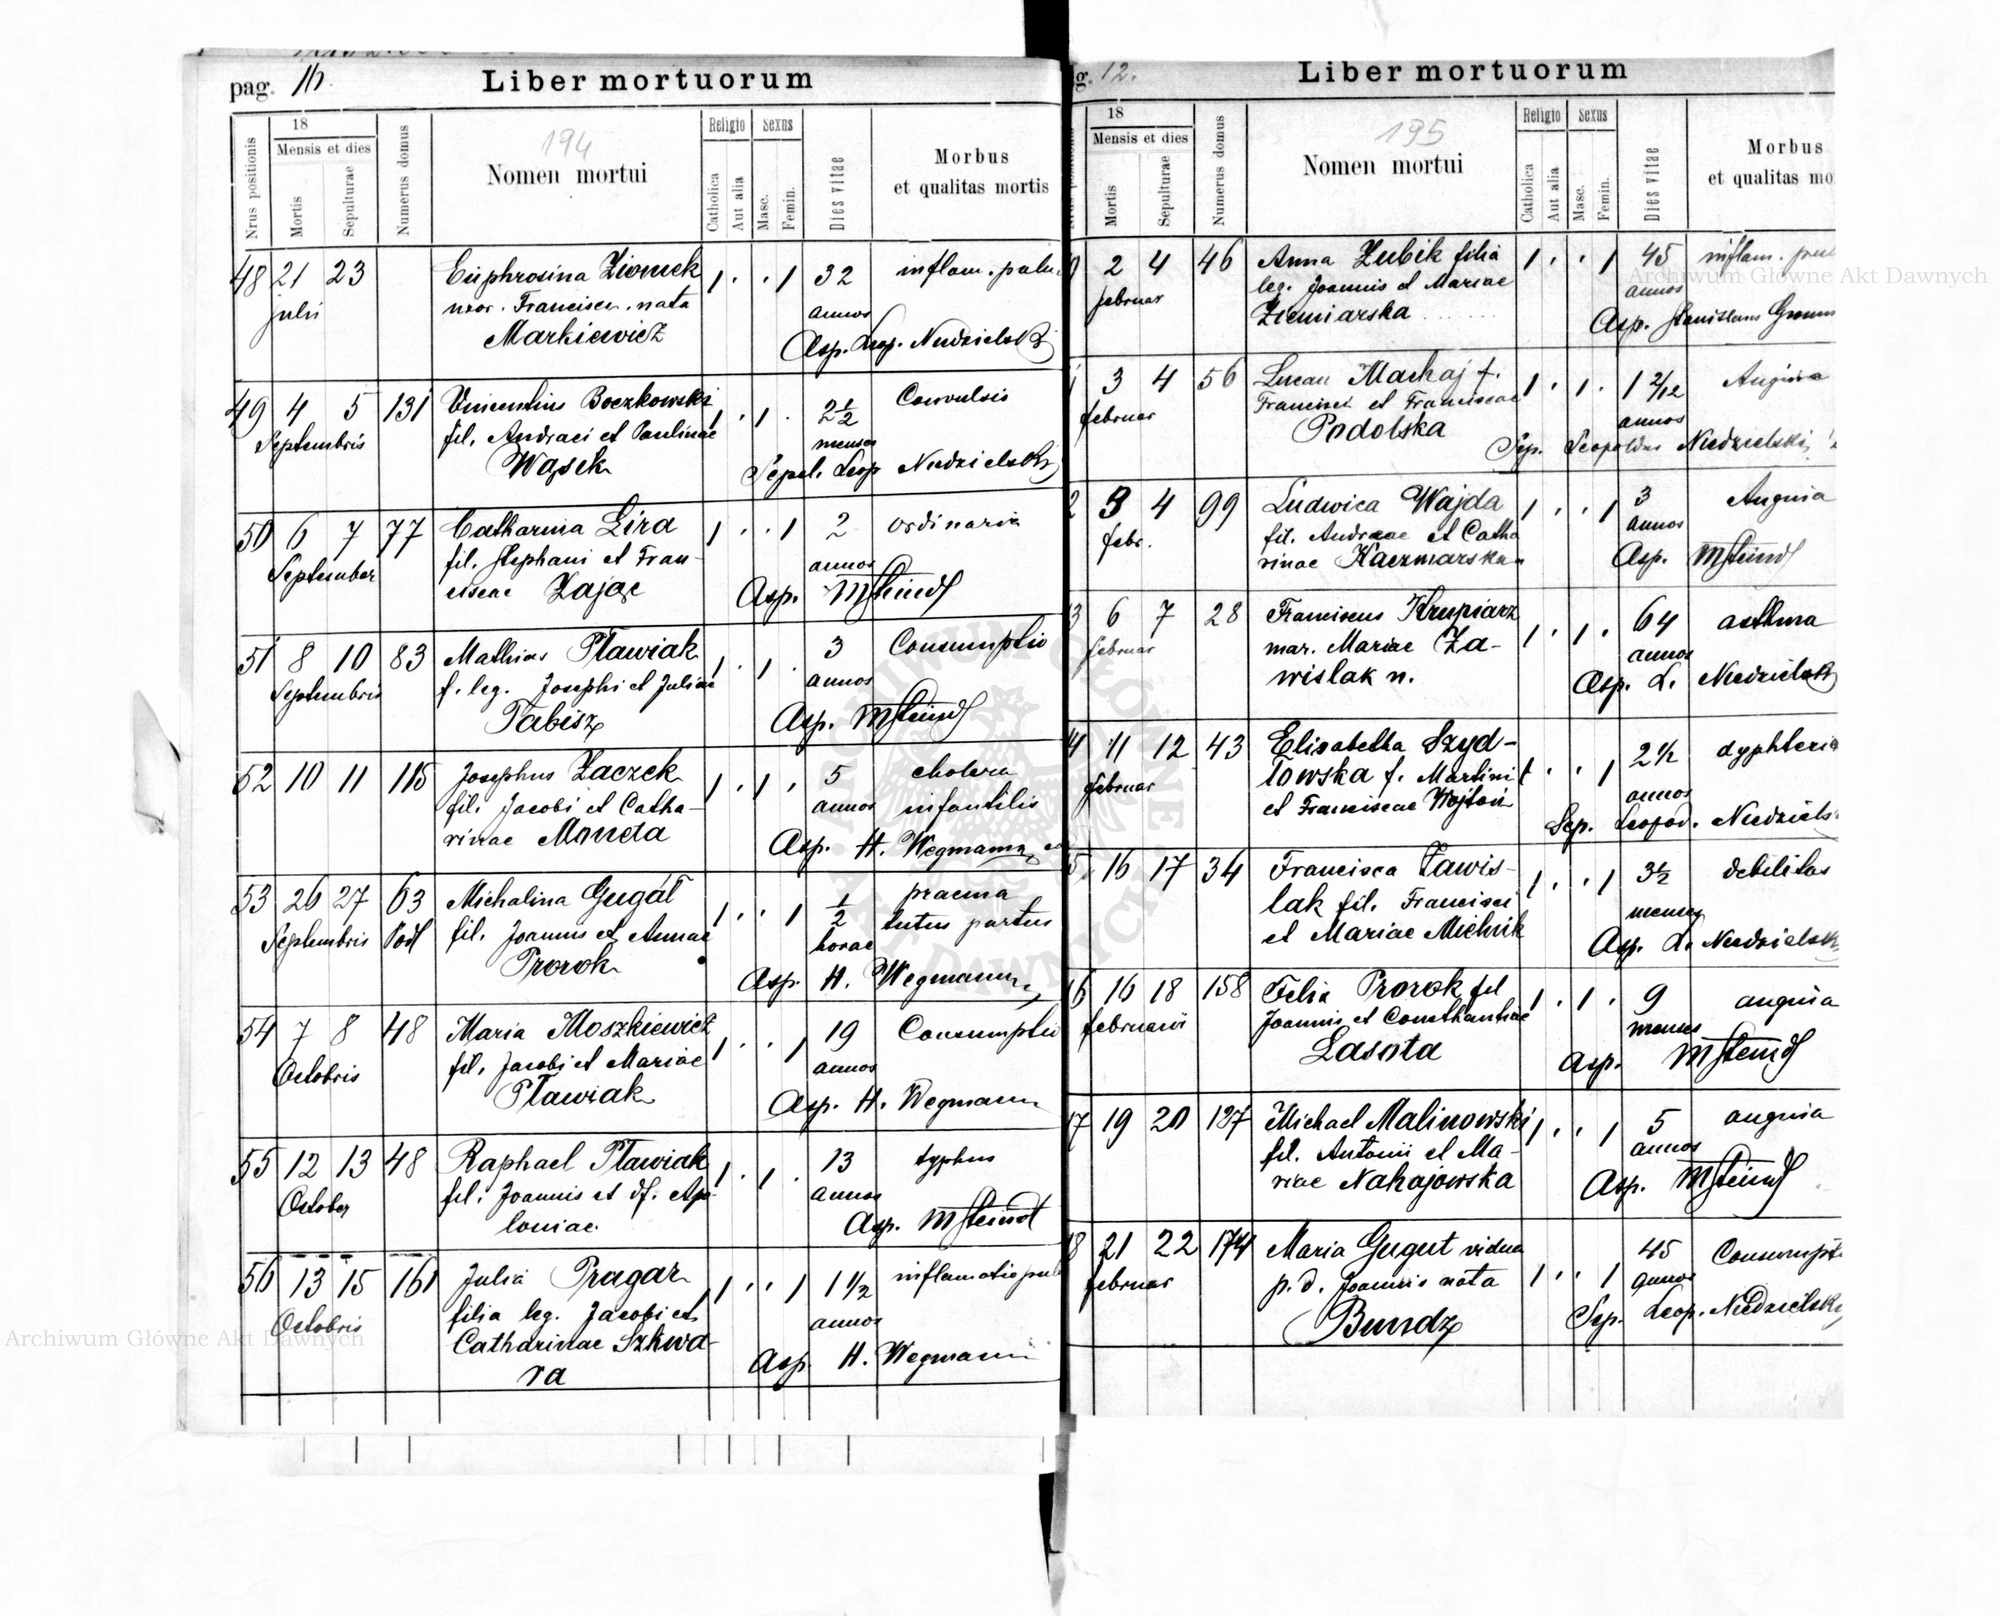 pag. 16. Liber mortuorum
Nrus positionis
18
Mensis et dies
Mortis
Sepulturae
Numerus domus
194
Nomen mortui
Religio
Catholica
Aut alia
Sexus
Masc.
Femin.
Dies vitae
Morbus
et qualitas mortis
48 21 23 Euphrosina Zionek 1 . . 1 32 inflam. pulm.
julii uxor. Francisci. nata annos
Markiewicz Asp. Leop. Niedzielski
49 4 5 131 Vincentius Boczkowski 1 . 1 . 2 1/2 Convulsis
Septembris fil. Andraei et Paulinae menses
Wąsek Sepel. Leop Niedzielski
50 6 7 77 Catharina Lira 1 . . 1 2 ordinaria
September fil. Stephani et Fran- annos
ciscae Zając Asp. MSteindl
51 8 10 83 Mathias Pławiak 1 . 1 . 3 Consumptio
Septembris f. leg. Josephi et Juliae annos
Tabisz Asp. MSteindl
52 10 11 115 Josephus Zaczek 1 . 1 . 5 cholera
fil. Jacobi et Catha- annos infantilis
rinae Moneta Asp. H. Wegmann
53 26 27 63 Michalina Gugát 1 . . 1 1/2 praema
Septembris Podl fil. Joannis et Annae horae tutus partus
Prorok Asp. H. Wegmann
54 7 8 48 Maria Moszkiewicz 1 . . 1 19 Consumptio
Octobris fil. Jacobi et Mariae annos
Pławiak Asp. H. Wegmann
55 12 13 48 Raphael Pławiak 1 . 1 . 13 typhus
October fil. Joannis et df. Apo- annos
loniae. Asp. MSteindl
56 13 15 161 Julia Pragar 1 . . 1 1 1/2 inflamatio pul
Octobris filia leg. Jacobi et annos
Catharinae Szkwa-
ra Asp. H. Wegmann
g. 12. Liber mortuorum
18
Mensis et dies
Mortis
Sepulturae
Numerus domus
195
Nomen mortui
Religio
Catholica
Aut alia
Sexus
Masc.
Femin.
Dies vitae
Morbus
et qualitas mo
2 4 46 Anna Zubik filia 1 . . 1 45 inflam. pul
februar leg. Joannis et Mariae annos
Ziemiarska Asp. Stanislaus
3 4 56 Lucas Machaj f. 1 . 1 . 1 2/12 Angina
februar Francisci et Franciscae annos
Podolska Sep. Leopoldus Niedzielski
2 3 4 99 Ludwica Wajda 1 . . 1 3 Angina
febr. fil. Andreae et Catha annos
rinae Kaczmarska Asp. MSteindl
3 6 7 28 Franciscus Krupiarz 1 . 1 . 64 asthma
februar mar. Mariae Za- annos
wislak n. Asp. L. Niedzielski
4 11 12 43 Elisabetha Szyd- 1 . . 1 2 1/2 dyphteria
februar łowska f. Martini annos
et Franciscae Wojtoń Sep. Leopod. Niedziels
5 16 17 34 Francisca Zawis- 1 . . 1 3 1/2 debilitas
lak fil. Francisci menses
et Mariae Michnik Asp. L. Niedzielsk
16 16 18 158 Felix Prorok fil 1 . 1 . 9 angina
februarii Joannis et Consthantiae menses
Lasota Asp. MSteindl
17 19 20 127 Michael Malinowski 1 . . 1 5 angina
fil. Antonii et Ma- annos
riae Nahajowska Asp. MSteindl
18 21 22 174 Maria Gugut vidua 1 . . 1 45 Consumpt
februar p. d. Joannis nata annos
Bundz Sep. Leop. Niedzielski
Archiwum Główne Akt Dawnych
Archiwum Główne Akt Dawnych
ARCHIWUM GŁÓWNE AKT DAWNYCH